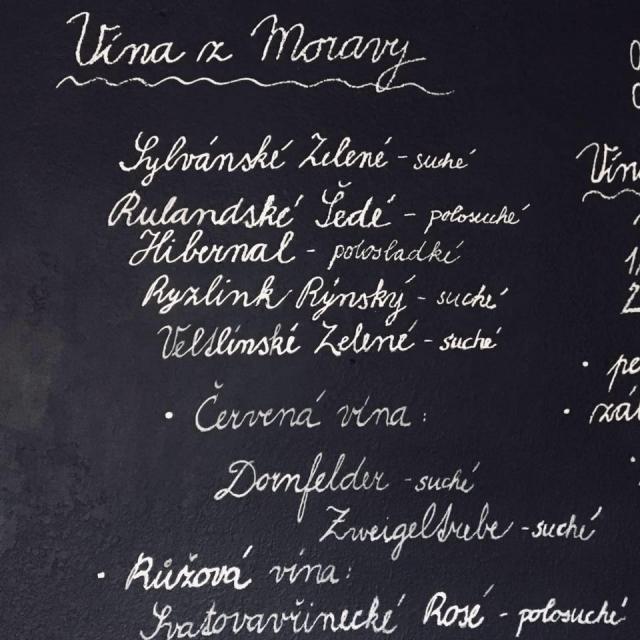 Vína z Moravy
Sylvánské Zelené - suché
Rulandské Šedé - polosuché
Hibernal - polosladké
Ryzlink Rýnský - suché
Veltlínské Zelené - suché
• Červená vína:
Dornfelder - suché
Zweigeltrebe - suché
• Růžová vína:
Svatovavřinecké Rosé - polosuché